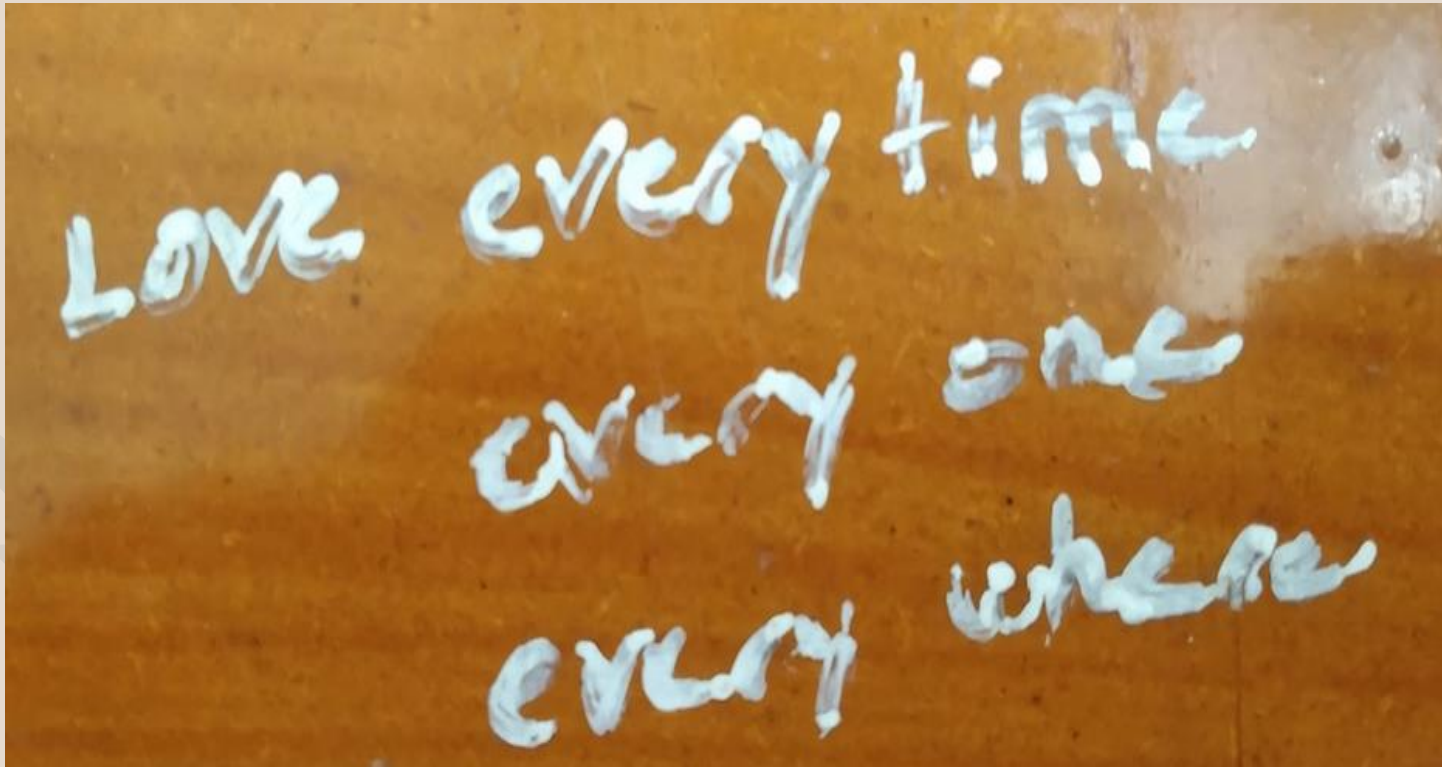 Love every time
every one
every where